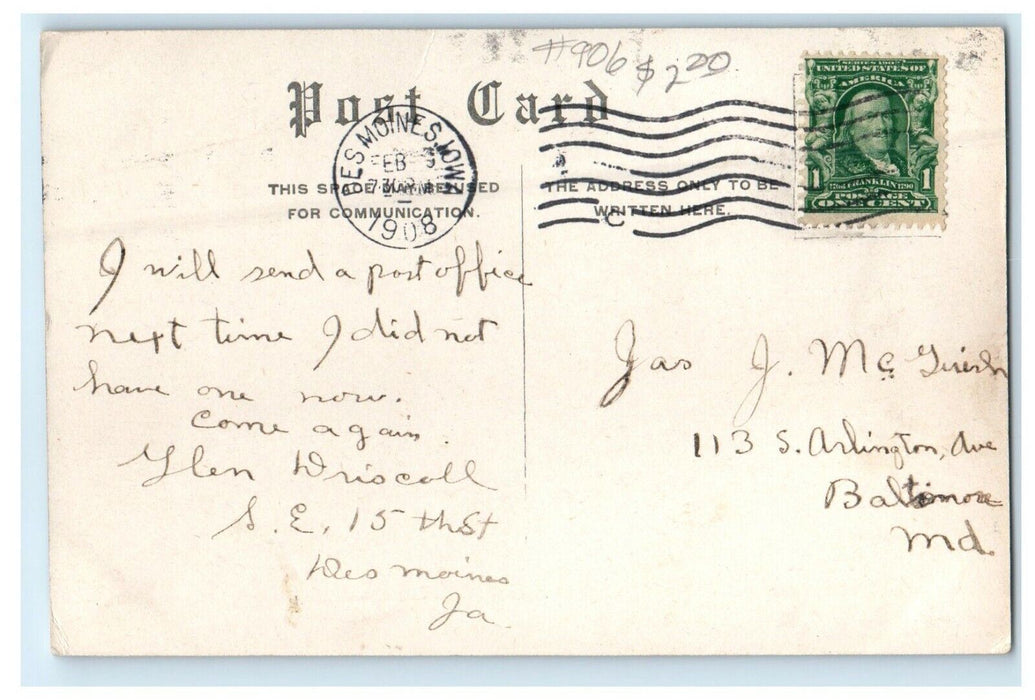 #906 $2.00
Post Card
SERIES 1902
UNITED STATES OF
AMERICA
1706 FRANKLIN 1790
1 POSTAGE 1
ONE CENT
DES MOINES, IOWA
FEB
1908
C
THIS SPACE MAY BE USED
FOR COMMUNICATION.
THE ADDRESS ONLY TO BE
WRITTEN HERE.
I will send a post office
next time I did not
have one now.
come again.
Glen Driscoll
S. E. 15 th St
Des moines
Ia
Jas J. McGuirk
113 S. Arlington, Ave
Baltimore
Md.